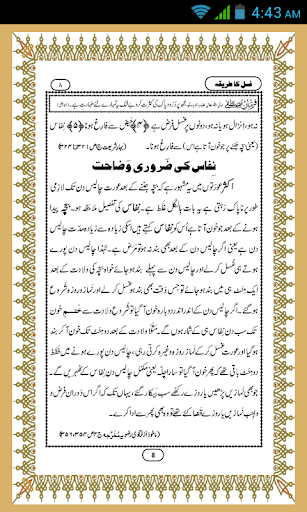 4:43 AM
غسل کا طریقہ ۸
نہ ہو، اِنزال ہو یا نہ ہو، دونوں پر غسل فرض ہے ﴿۴﴾ حَیض سے فارِغ ہونا ﴿۵﴾ نِفاس
(یعنی بچّہ جننے پر جو خون آتا ہے اس) سے فارِغ ہونا۔ (بہارشریعت ج۱ ص۳۲۱،۳۲۴)
نِفاس کی ضَروری وَضاحت
اکثر عورَتوں میں یہ مشہور ہے کہ بچّہ جننے کے بعد عورت چالیس دن تک لازِمی
طور پر ناپاک رَہتی ہے یہ بات بالکل غلط ہے۔ نِفاس کی تفصیل مُلاحَظہ ہو۔ بچّہ پیدا
ہونے کے بعد جو خون آتا ہے اُس کو نِفاس کہتے ہیں اسکی زیادہ سے زیادہ مدّت چالیس
دن ہے یعنی اگر چالیس دن کے بعد بھی بند نہ ہو تو مرض ہے۔ لہٰذا چالیس دن پورے
ہوتے ہی غسل کر لے اور چالیس دن سے پہلے بند ہو جائے خواہ بچّہ کی ولادت کے بعد
ایک مِنَٹ ہی میں بند ہو جائے تو جس وَقت بھی بند ہو غسل کر لے اور نَماز و روزہ شروع
ہو گئے۔ اگر چالیس دن کے اندر اندر دوبارہ خون آ گیا تو شروعِ ولادت سے ختمِ خون
تک سب دن نِفاس ہی کے شمار ہوں گے۔ مَثَلاً ولادت کے بعد دو مِنَٹ تک خون آ کر بند
ہو گیا اور عورت غسل کر کے نَماز روزہ وغیرہ کرتی رہی، چالیس دن پورے ہونے میں فقط
دو مِنَٹ باقی تھے کہ پھر خون آ گیا تو سارا چِلّہ یعنی مکمَّل چالیس دن نِفاس کے ٹھہریں گے۔
جو بھی نَمازیں پڑھیں یا روزے رکھے سب بیکار گئے، یہاں تک کہ اگر اس دوران فرض و
واجِب نَمازیں یا روزے قضا کئے تھے تو وہ بھی پھر سے ادا کرے۔
(ماخوذ از فتاوٰی رضویہ مُخَرَّجہ ج۴ ص۳۵۴،۳۵۶)
8